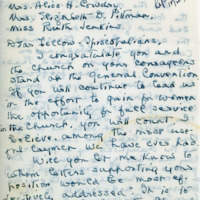 Mrs. Alice H. Cowdry
Mrs. Elizabeth D. Pittman
Miss Ruth Jenkins.
Dear Fellow-Episcopalians,
I congratulate you and
the church on your courageous
stand at the General Convention
If you will continue to lead us
in the effort to gain for women
the opportunity for full service
in the church, you will count, I
believe, among the most use-
ful laymen we have ever had.
Will you let me know to
whom letters supporting your
position would be most ef-
fectively addressed. It is to